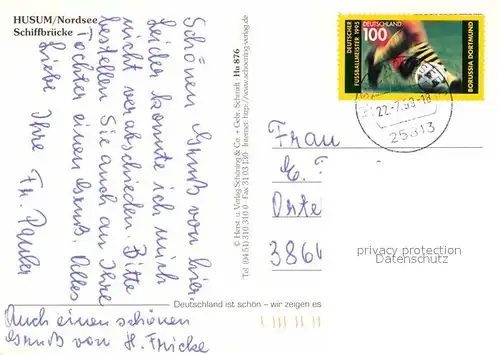 HUSUM/Nordsee
Schiffbrücke
Schönen Gruß von hier.
Leider konnte ich mich
nicht verabschieden. Bitte
bestellen Sie auch an Ihre
Tochter einen Gruß. Alles
Liebe Ihre Fr. Pauler
Auch einen schönen
Gruß von H. Fricke
© Horst u. Verlag Schöning & Co. + Gebr. Schmidt Hu 876
Tel (04 51) 310 310 0 · Fax 31 03 130 Internet: http://www.schoening-verlag.de
Deutschland ist schön – wir zeigen es
DEUTSCHER
FUSSBALLMEISTER 1995
DEUTSCHLAND
100
BORUSSIA DORTMUND
25813
Frau
E.
Orte
3864
privacy protection
Datenschutz